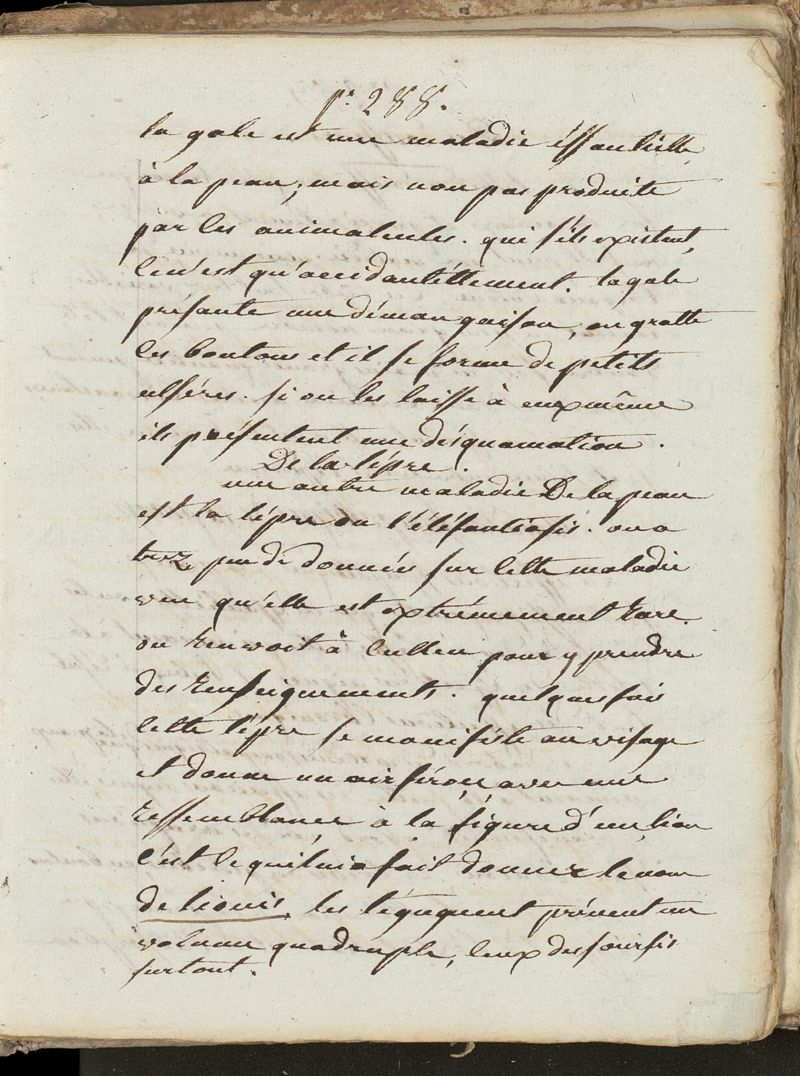 pe. 288.
la gale est une maladie éssentielle
à la peau, mais non pas produite
par les animalcules. qui s'ils existent,
ce n'est qu'accidantéllement. la gale
présante une démangaison, on gratte
les boutons et il se forme de petits
ulséres. si on les laisse à eux même
ils présentent une désquamation.
De la lépre.
une autre maladie De la peau
est la lépre ou l'éléfantiasis. on a
trez peu de données sur cette maladie
vue qu'elle est extrémement rare
on renvoit à Cullen pour y prendre
des renseignements. quelques fois
cette lépre se manifeste au visage
et donne un air féroce avec une
ressemblance a la figure d'un lion
c'est ce qui lui a fait donner le nom
de lionis, les téguguent prénent un
volume quadruple, ceux des soursis
surtout.